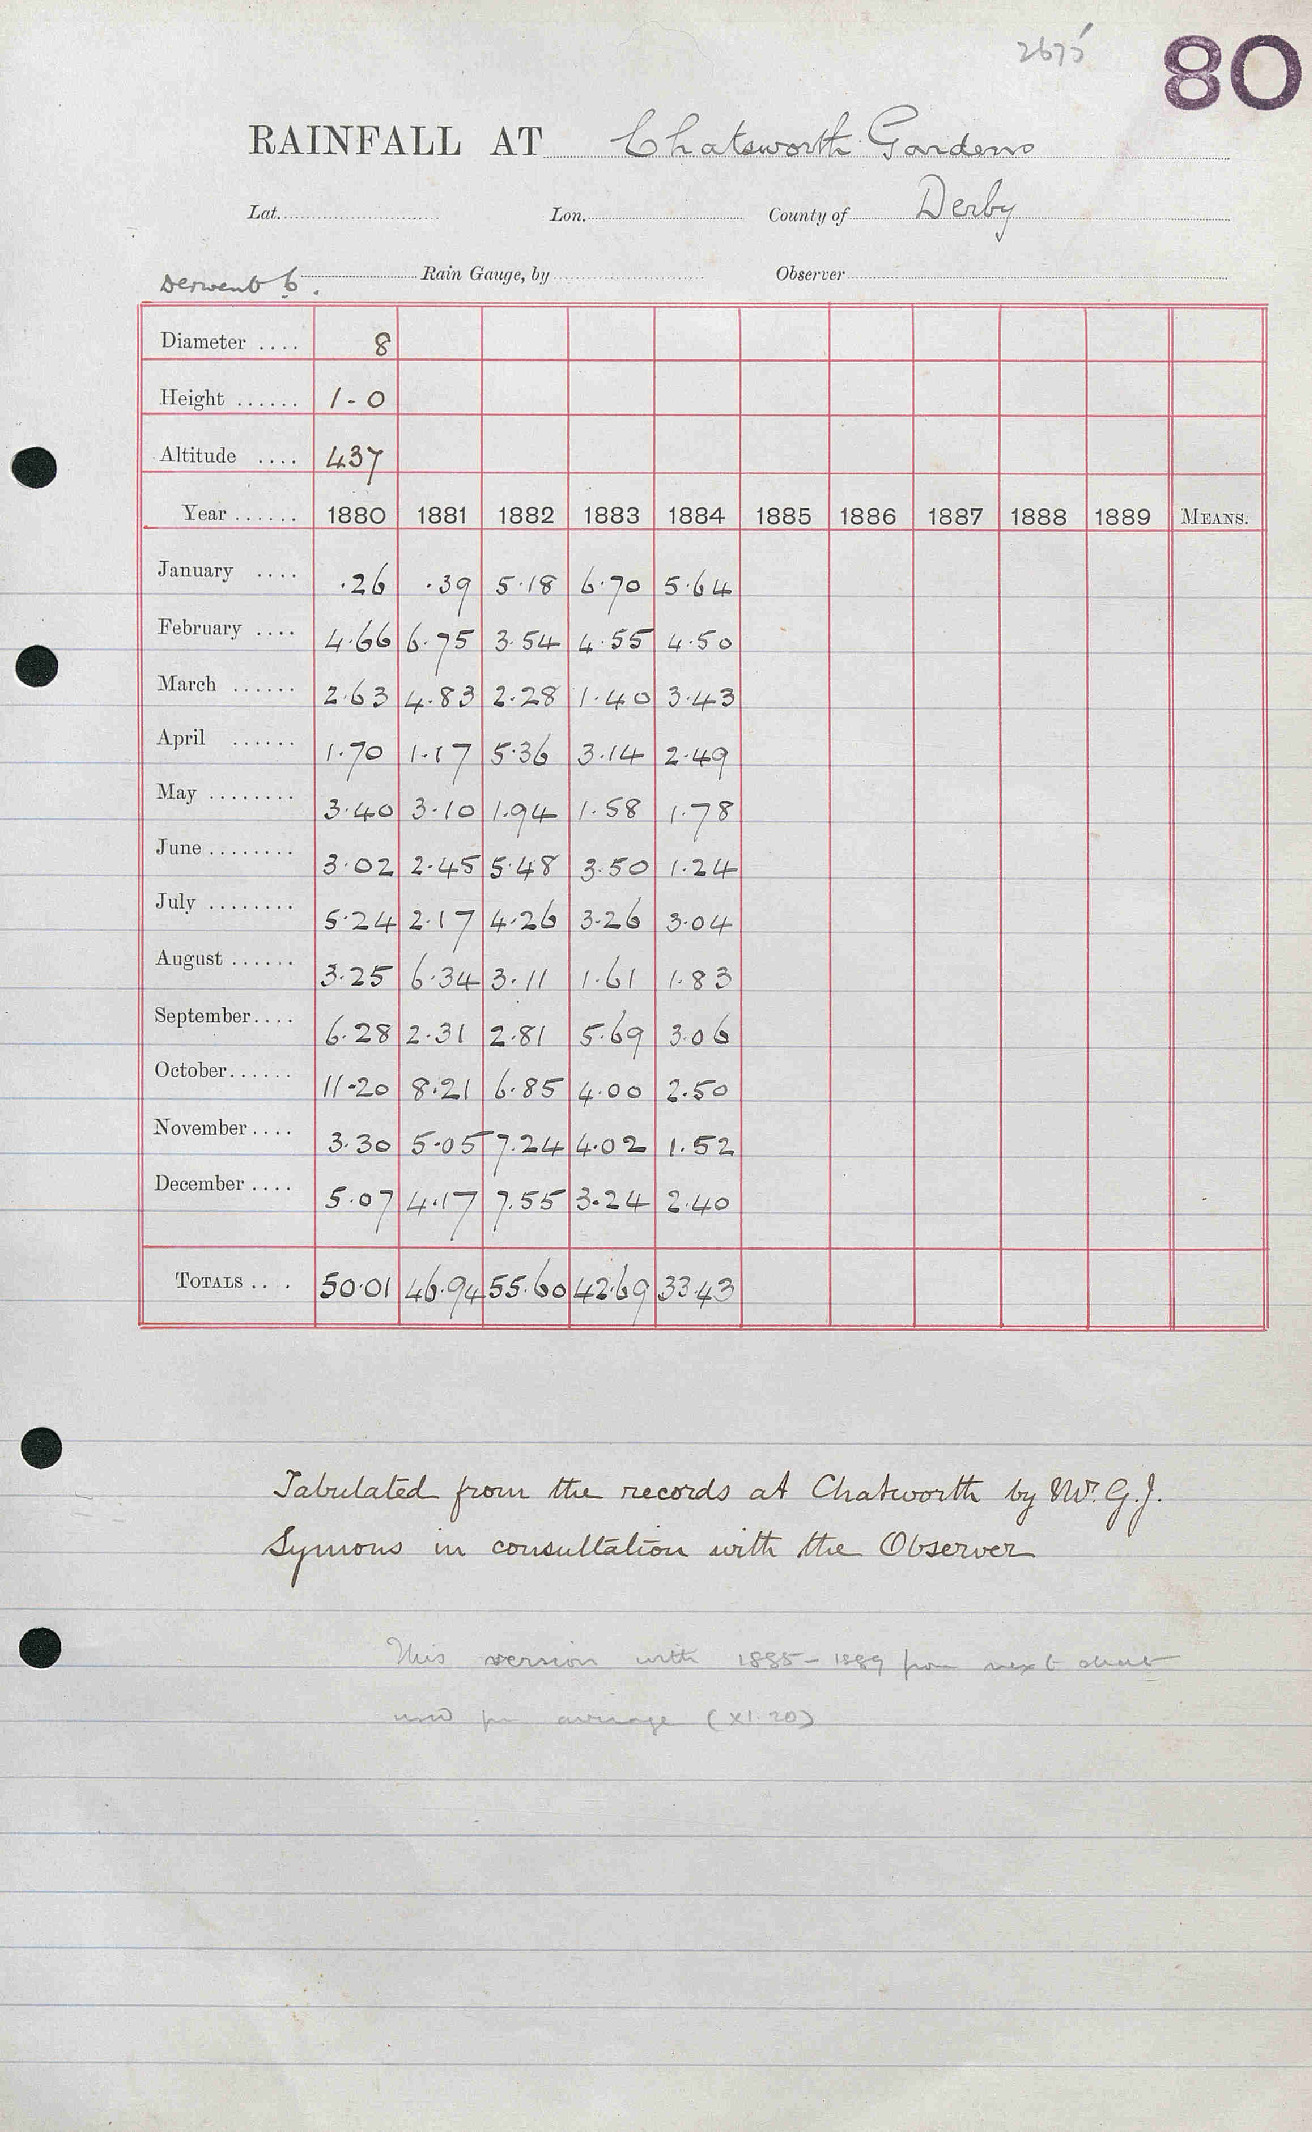 2675
80
RAINFALL AT Chatsworth Gardens
Lat. Lon. County of Derby
Derwent 6. Rain Gauge, by Observer
Diameter .... 8
Height ...... 1-0
Altitude .... 437
Year ...... 1880 1881 1882 1883 1884 1885 1886 1887 1888 1889 MEANS.
January .... .26 .39 5.18 6.70 5.64
February .... 4.66 6.75 3.54 4.55 4.50
March ...... 2.63 4.83 2.28 1.40 3.43
April ...... 1.70 1.17 5.36 3.14 2.49
May ........ 3.40 3.10 1.94 1.58 1.78
June ........ 3.02 2.45 5.48 3.50 1.24
July ........ 5.24 2.17 4.26 3.26 3.04
August ...... 3.25 6.34 3.11 1.61 1.83
September.... 6.28 2.31 2.81 5.69 3.06
October...... 11.20 8.21 6.85 4.00 2.50
November.... 3.30 5.05 7.24 4.02 1.52
December.... 5.07 4.17 7.55 3.24 2.40
TOTALS .... 50.01 46.94 55.60 42.69 33.43
Tabulated from the records at Chatsworth by Mr. G.J.
Symons in consultation with the Observer
This version with 1885-1889 from next sheet
used for average (XI.20)